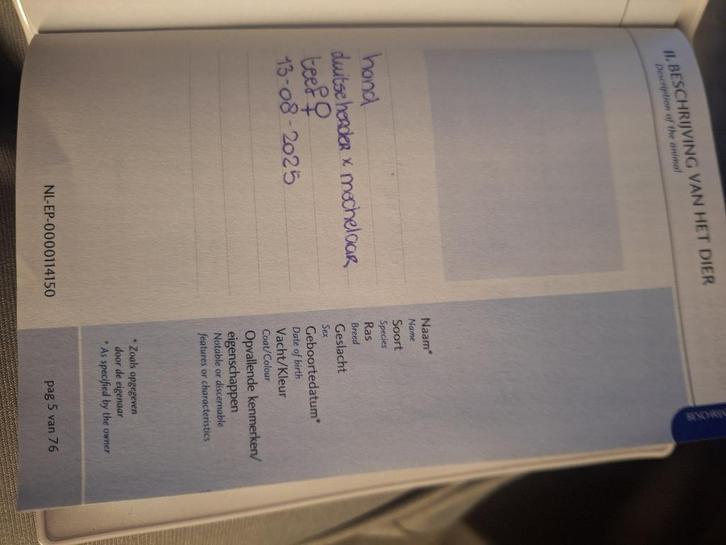 II. BESCHRIJVING VAN HET DIER
Description of the animal
Naam*
Name
Soort hond
Species
Ras duitseherder x mechelaar
Breed
Geslacht teef ♀
Sex
Geboortedatum* 13-08-2025
Date of birth
Vacht/Kleur
Coat/Colour
Opvallende kenmerken/
eigenschappen
Notable or discernable
features or characteristics
* Zoals opgegeven
door de eigenaar
* As specified by the owner
NL-EP-0000114150
pag 5 van 76